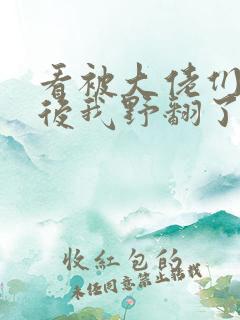 看被大佬们
后我野翻了
收红包的
未经同意禁止转载